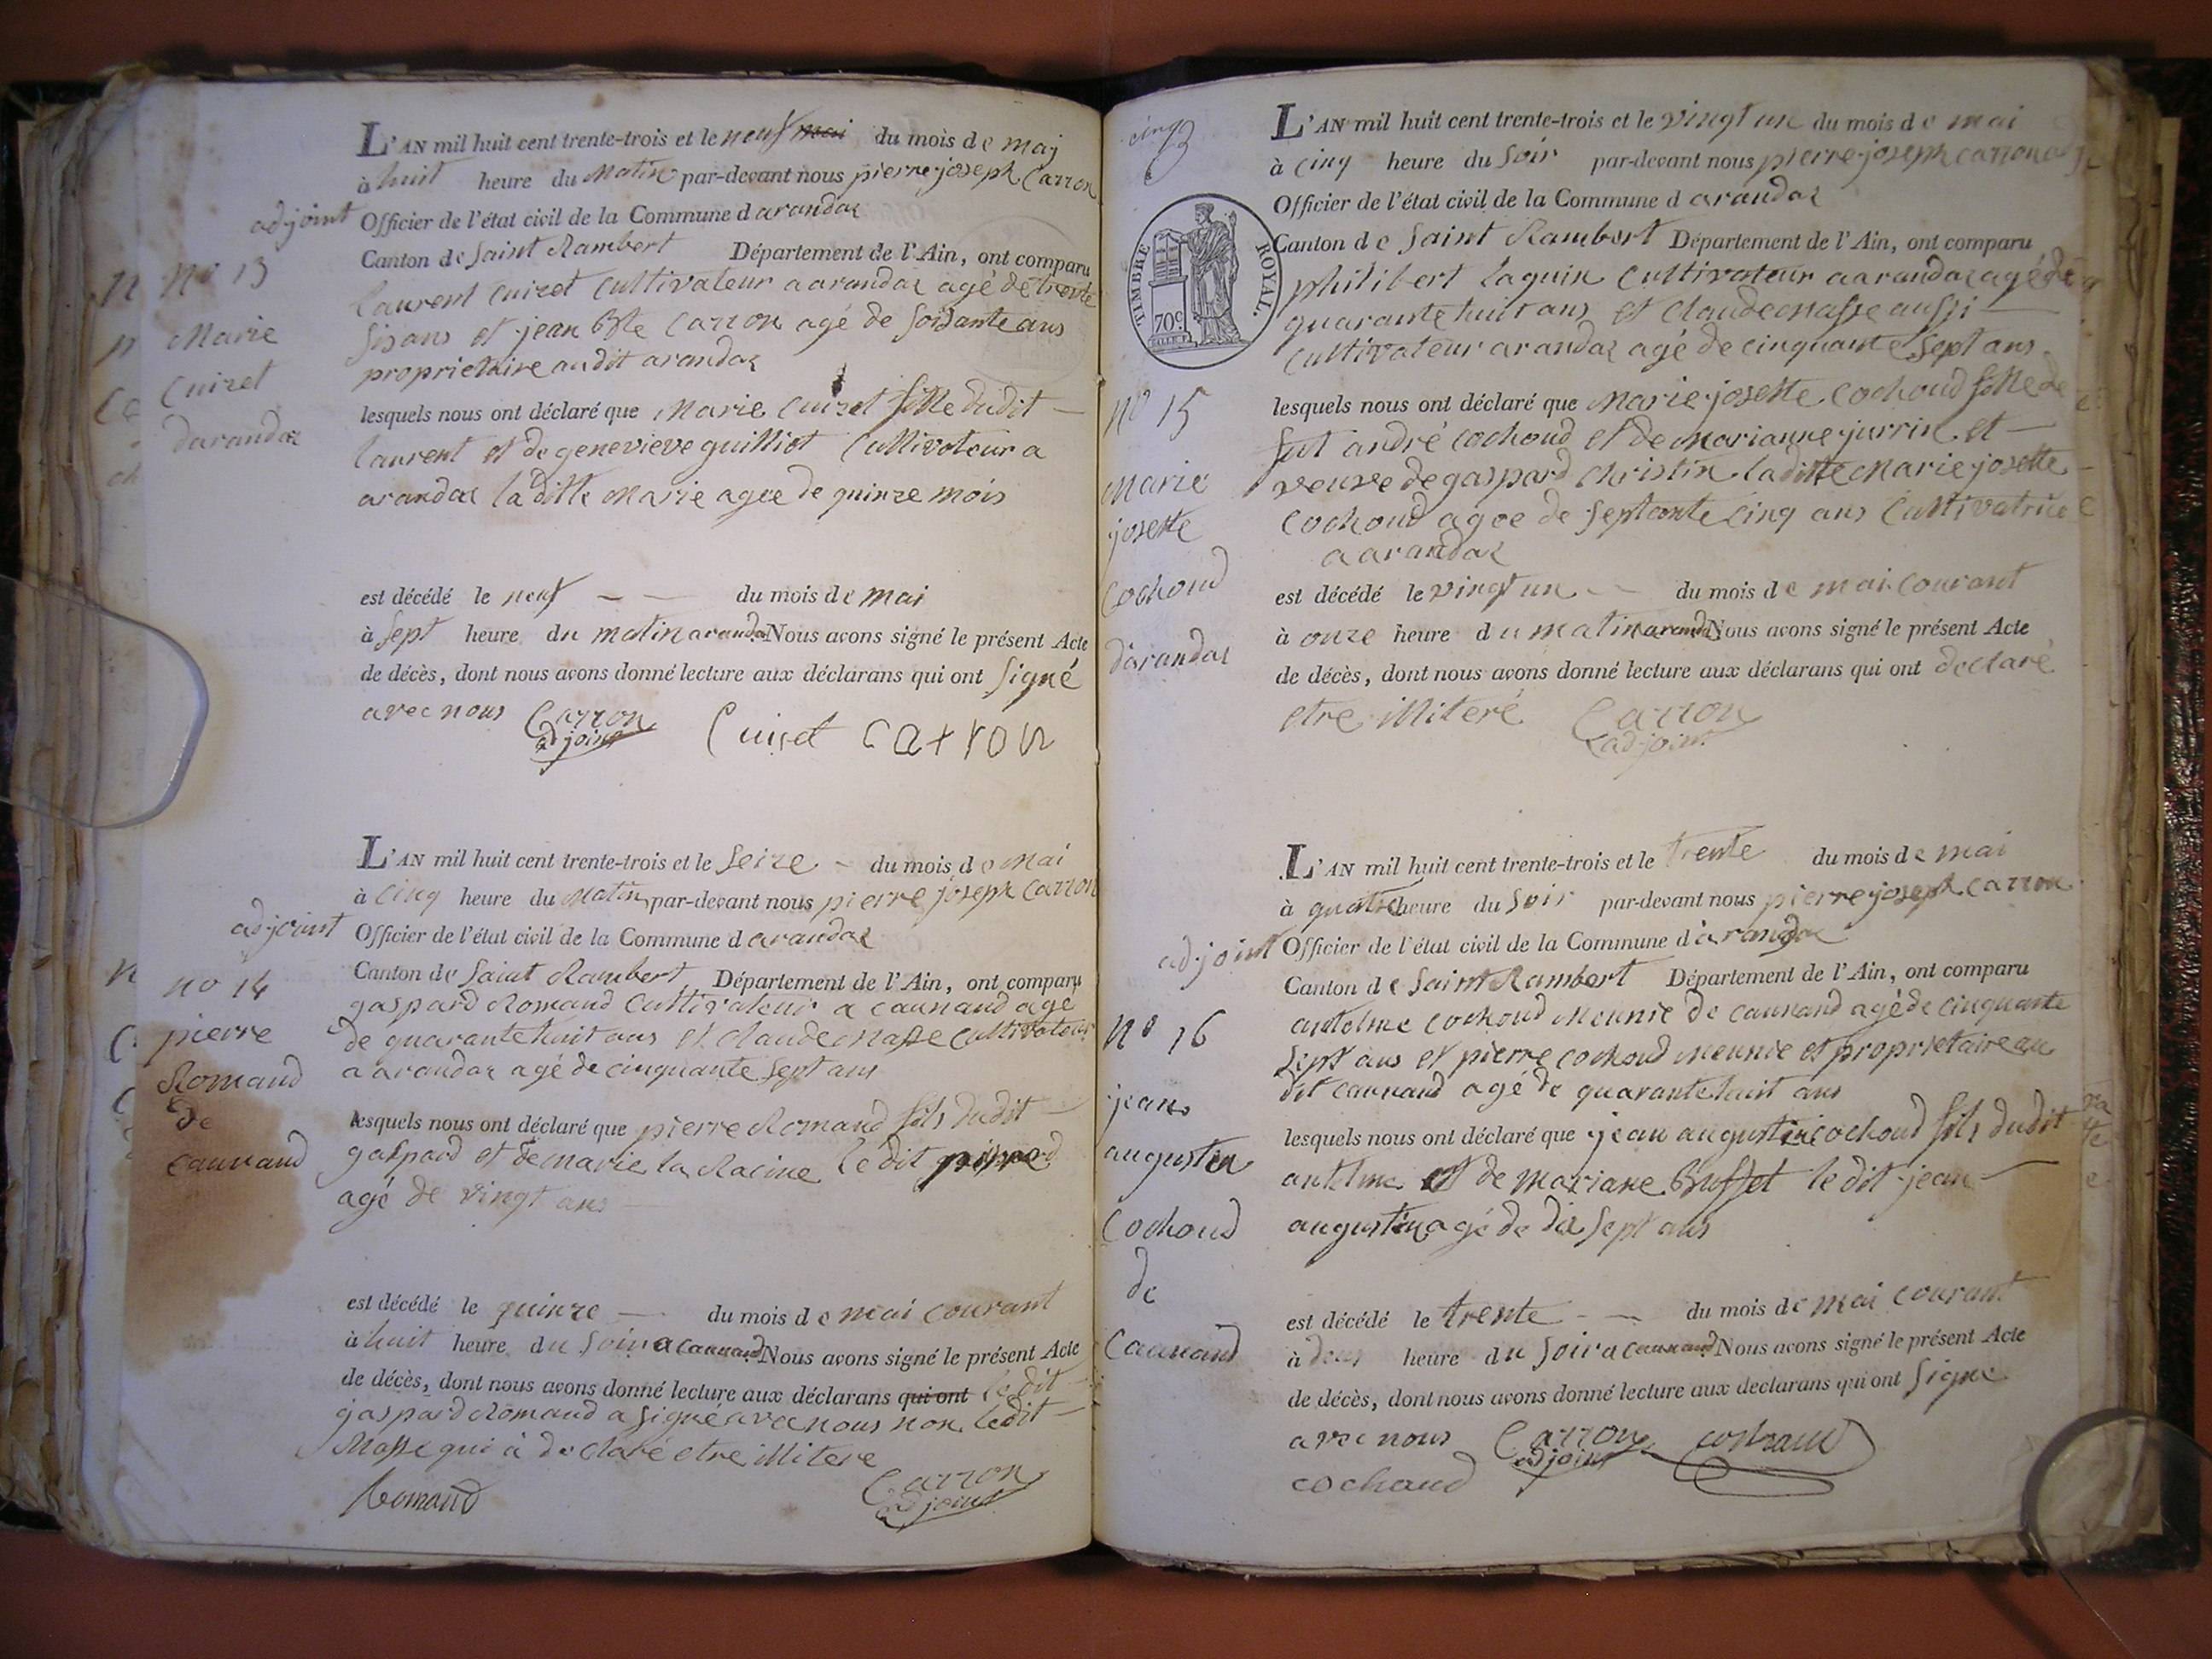 L'AN mil huit cent trente-trois et le neuf mai du mois de maj
à huit heure du matin par-devant nous pierre joseph Carron
adjoint Officier de l'état civil de la Commune d arandaz
Canton de Saint Rambert Département de l'Ain, ont comparu
laurent Cuizet Cultivateur a arandaz agé de trente
sis ans et jean Bte Carron agé de soisante ans
proprietaire audit arandaz
lesquels nous ont déclaré que Marie Cuizet fille dudit
laurent et de genevieve guilliot Cultivateur a
arandaz laditte Marie agee de quinze mois
est décédé le neuf du mois de mai
à sept heure du matin a arandaz Nous avons signé le présent Acte
de décès, dont nous avons donné lecture aux déclarans qui ont signé
avec nous Carron
adjoint
Cuiset Carron
No 13
Marie
Cuizet
darandaz
L'AN mil huit cent trente-trois et le seize du mois de Mai
à cinq heure du matin par-devant nous pierre joseph Carron
adjoint Officier de l'état civil de la Commune d arandaz
Canton de Saint Rambert Département de l'Ain, ont comparu
gaspard Romand Cultivateur a caunand agé
de quarante huit ans et claude Masse Cultivateur
a arandaz agé de cinquante sept ans
lesquels nous ont déclaré que pierre Romand fils dudit
gaspard et de marie la Racine le dit pierre
agé de vingt ans
est décédé le quinze du mois de mai courant
à huit heure du soir a caunand Nous avons signé le présent Acte
de décès, dont nous avons donné lecture aux déclarans qui ont le dit
gaspard Romand a signé avec nous non ledit
Masse qui à declaré etre illitere
Romand Carron
adjoint
no 14
pierre
Romand
de
caunand
cinq
TIMBRE ROYAL.
70c
L'AN mil huit cent trente-trois et le vingt un du mois de mai
à cinq heure du soir par-devant nous pierre joseph carron
Officier de l'état civil de la Commune d arandaz
Canton de Saint Rambert Département de l'Ain, ont comparu
philibert laguin Cultivateur a arandaz agé de
quarante huit ans et Claude Masse aussi
cultivateur arandaz agé de cinquante sept ans
lesquels nous ont déclaré que Marie josette Cochoud fille de
fut andré cochoud et de Marianne jurrin et
veuve de gaspard Christin laditte Marie josette
Cochoud agee de septante cinq ans Cultivatrice
a arandaz
est décédé le vingt un du mois de mai courant
à onze heure du matin a arandaz Nous avons signé le présent Acte
de décès, dont nous avons donné lecture aux déclarans qui ont declaré
etre illiteré Carron
adjoint
no 15
Marie
josette
Cochoud
d'arandaz
L'AN mil huit cent trente-trois et le trente du mois de mai
à quatre heure du soir par-devant nous pierre joseph Carron
adjoint Officier de l'état civil de la Commune d'arandaz
Canton de Saint Rambert Département de l'Ain, ont comparu
antelme Cochoud Meunie de Caunand agé de cinquante
sept ans et pierre cochoud meunie et proprietaire au
dit Caunand agé de quarante huit ans
lesquels nous ont déclaré que jean augustin cochoud fils dudit
antelme et de Mariane Buffet le dit jean
augustin agé de dix sept ans
est décédé le trente du mois de mai courant
à deux heure du soir a Caunand Nous avons signé le présent Acte
de décès, dont nous avons donné lecture aux déclarans qui ont signe
avec nous Carron
adjoint
cochaud
No 16
jean
augustin
Cochoud
de
Caunand